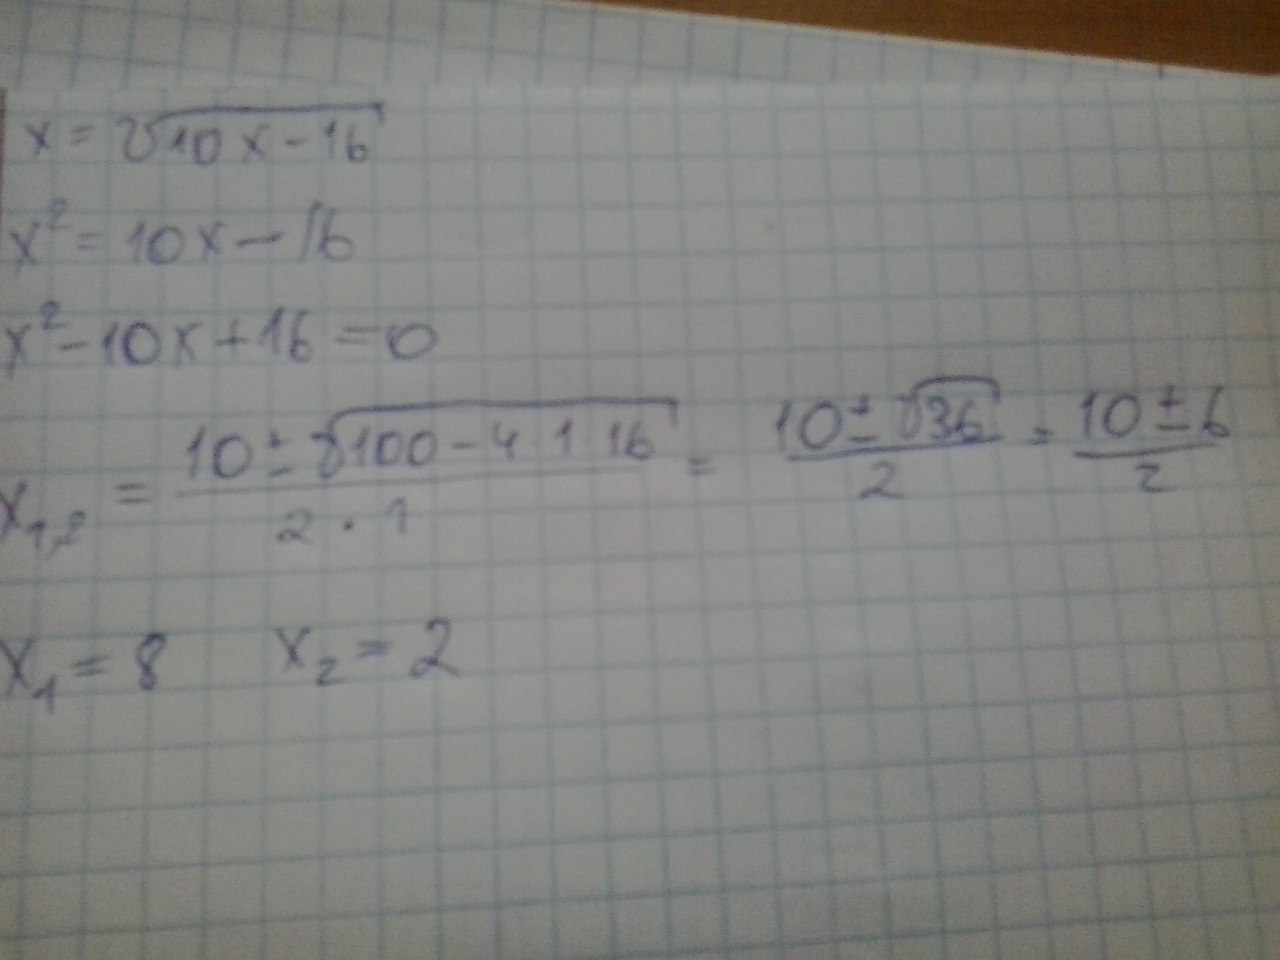 x = √10x - 16
x² = 10x - 16
x² - 10x + 16 = 0
x₁,₂ = (10 ± √100 - 4 1 16)/(2 · 1) = (10 ± √36)/2 = (10 ± 6)/2
x₁ = 8 x₂ = 2